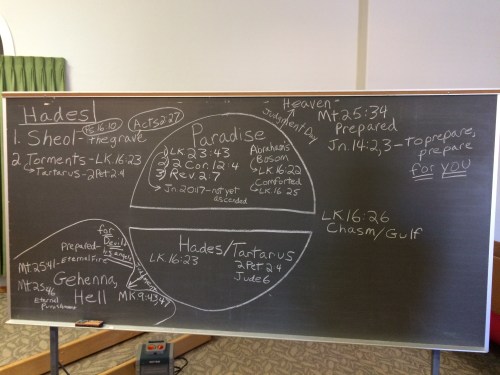 Hades
1. Sheol - the grave
Ps 16:10
Acts 2:27
2. Torments - LK.16:23
Tartarus - 2 Pet 2:4
Paradise
1) LK 23:43
2) 2 Cor. 12:4
3) Rev 2:7
Jn. 20:17 - not yet
ascended
Abraham's
Bosom
LK.16:22
Comforted
LK.16:25
Heaven -
Judgment Day
Mt 25:34
Prepared
Jn. 14:2,3 - To prepare,
prepare
for you
LK 16:26
Chasm/Gulf
Hades/Tartarus
LK 16:23
2 Pet 2:4
Jude 6
for
Devil
Prepared -
Mt 25:41 - Eternal Fire
Mt 25:46
Eternal
Punishment
Gehenna,
Hell